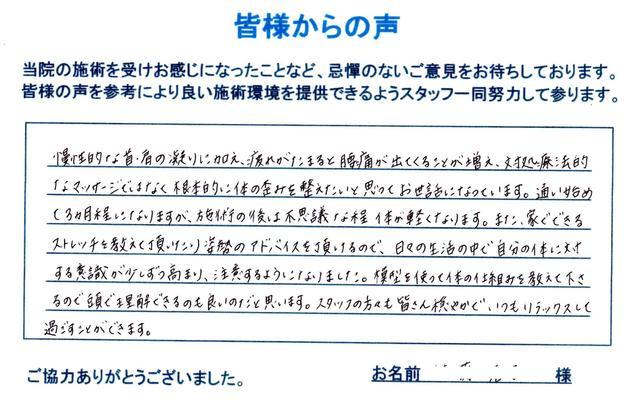 皆様からの声
当院の施術を受けお感じになったことなど、忌憚のないご意見をお待ちしております。
皆様の声を参考により良い施術環境を提供できるようスタッフ一同努力して参ります。
慢性的な首・肩の凝りに加え、疲れがたまると腰痛が出てくることが増え、対処療法的
なマッサージではなく根本的に体の歪みを整えたいと思ってお世話になっています。通い始め
て3カ月程になりますが、施術の後は不思議な程体が軽くなります。また、家でできる
ストレッチを教えて頂いたり姿勢のアドバイスを頂けるので、日々の生活の中で自分の体に対
する意識が少しずつ高まり、注意するようになりました。模型を使って体の仕組みを教えて下さ
るので頭で理解できるのも良いのだと思います。スタッフの方々も皆さん穏やかで、いつもリラックスして
過ごすことができます。
ご協力ありがとうございました。
お名前 様